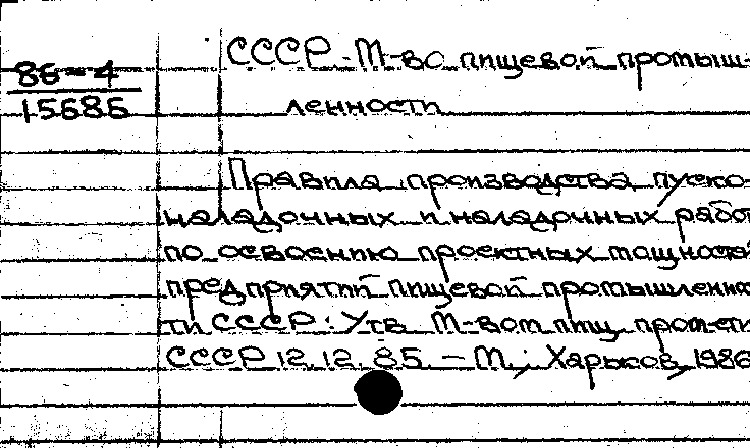 86-4
15686
СССР. М-во пищевой промыш-
ленности
Правила производства пуско-
наладочных и наладочных работ
по освоению проектных мощностей
предприятий пищевой промышленнос-
ти СССР: Утв. М-вом пищ. пром-сти
СССР 12.12.85. - М.; Харьков, 1986